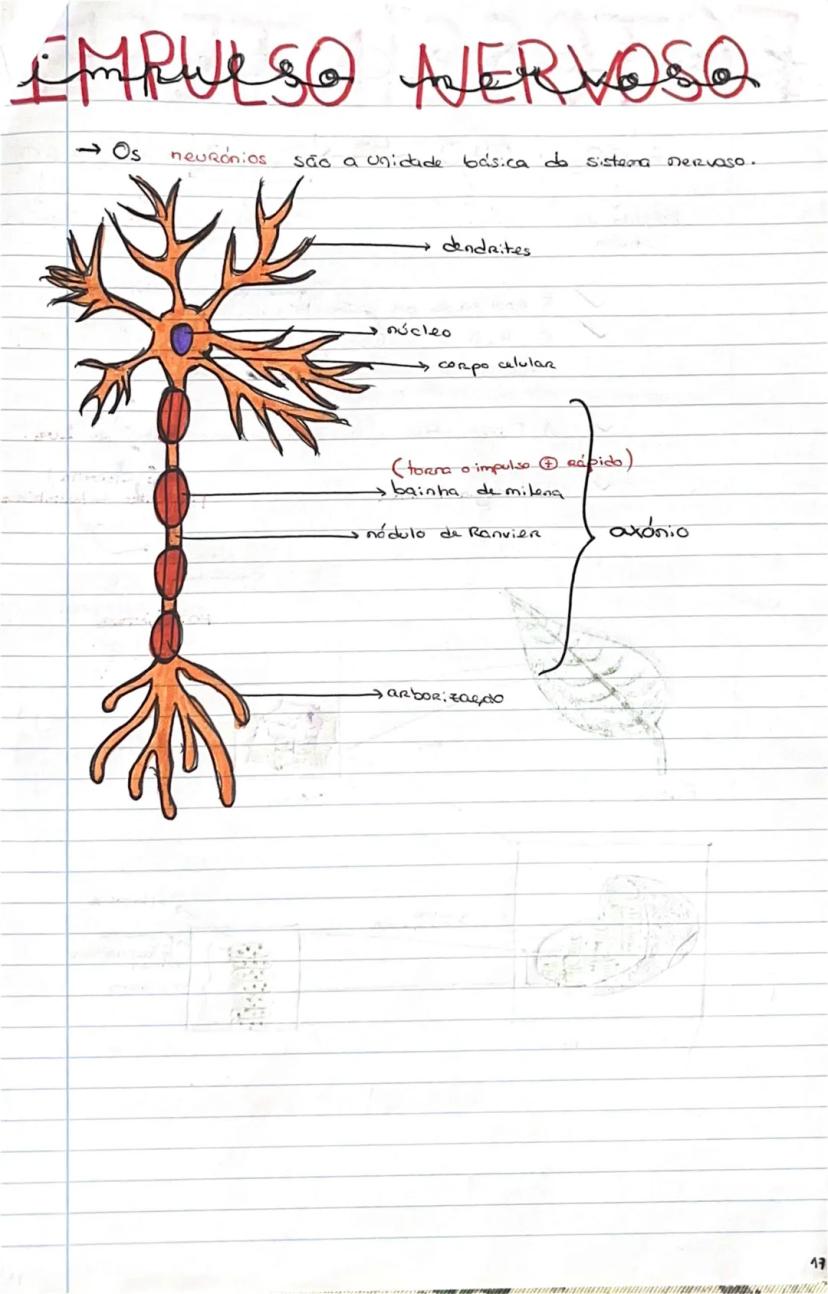 IMPULSO NERVOSO
impulso nervoso
→ Os neurónios são a unidade básica do sistema nervoso.
dendrites
núcleo
corpo celular
(torna o impulso ⊕ rápido)
bainha de milena
nódulo de Ranvier
axónio
arborização
17